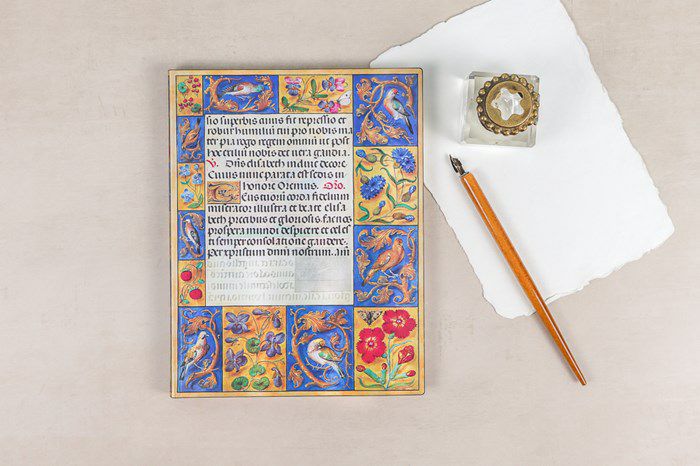 sio superbis anus fit repressio et
robur humiliū tui pro nobis ma
ter pia rego regem omniū ut post
hoc exiliū nobis det vera gaudia.
V. Dn̄s elisabeth induit decore.
Cuius nunc parata est sedis in
honore Oremus. Oro.
Tuorū corda fidelium
miserator illustra et beate elisa
beth precibus et gloriosis. fac nos
prospera mundi despicere et celes
ti semper consolatione gaudere.
per xpristum dnm̄ nostrum. am̄